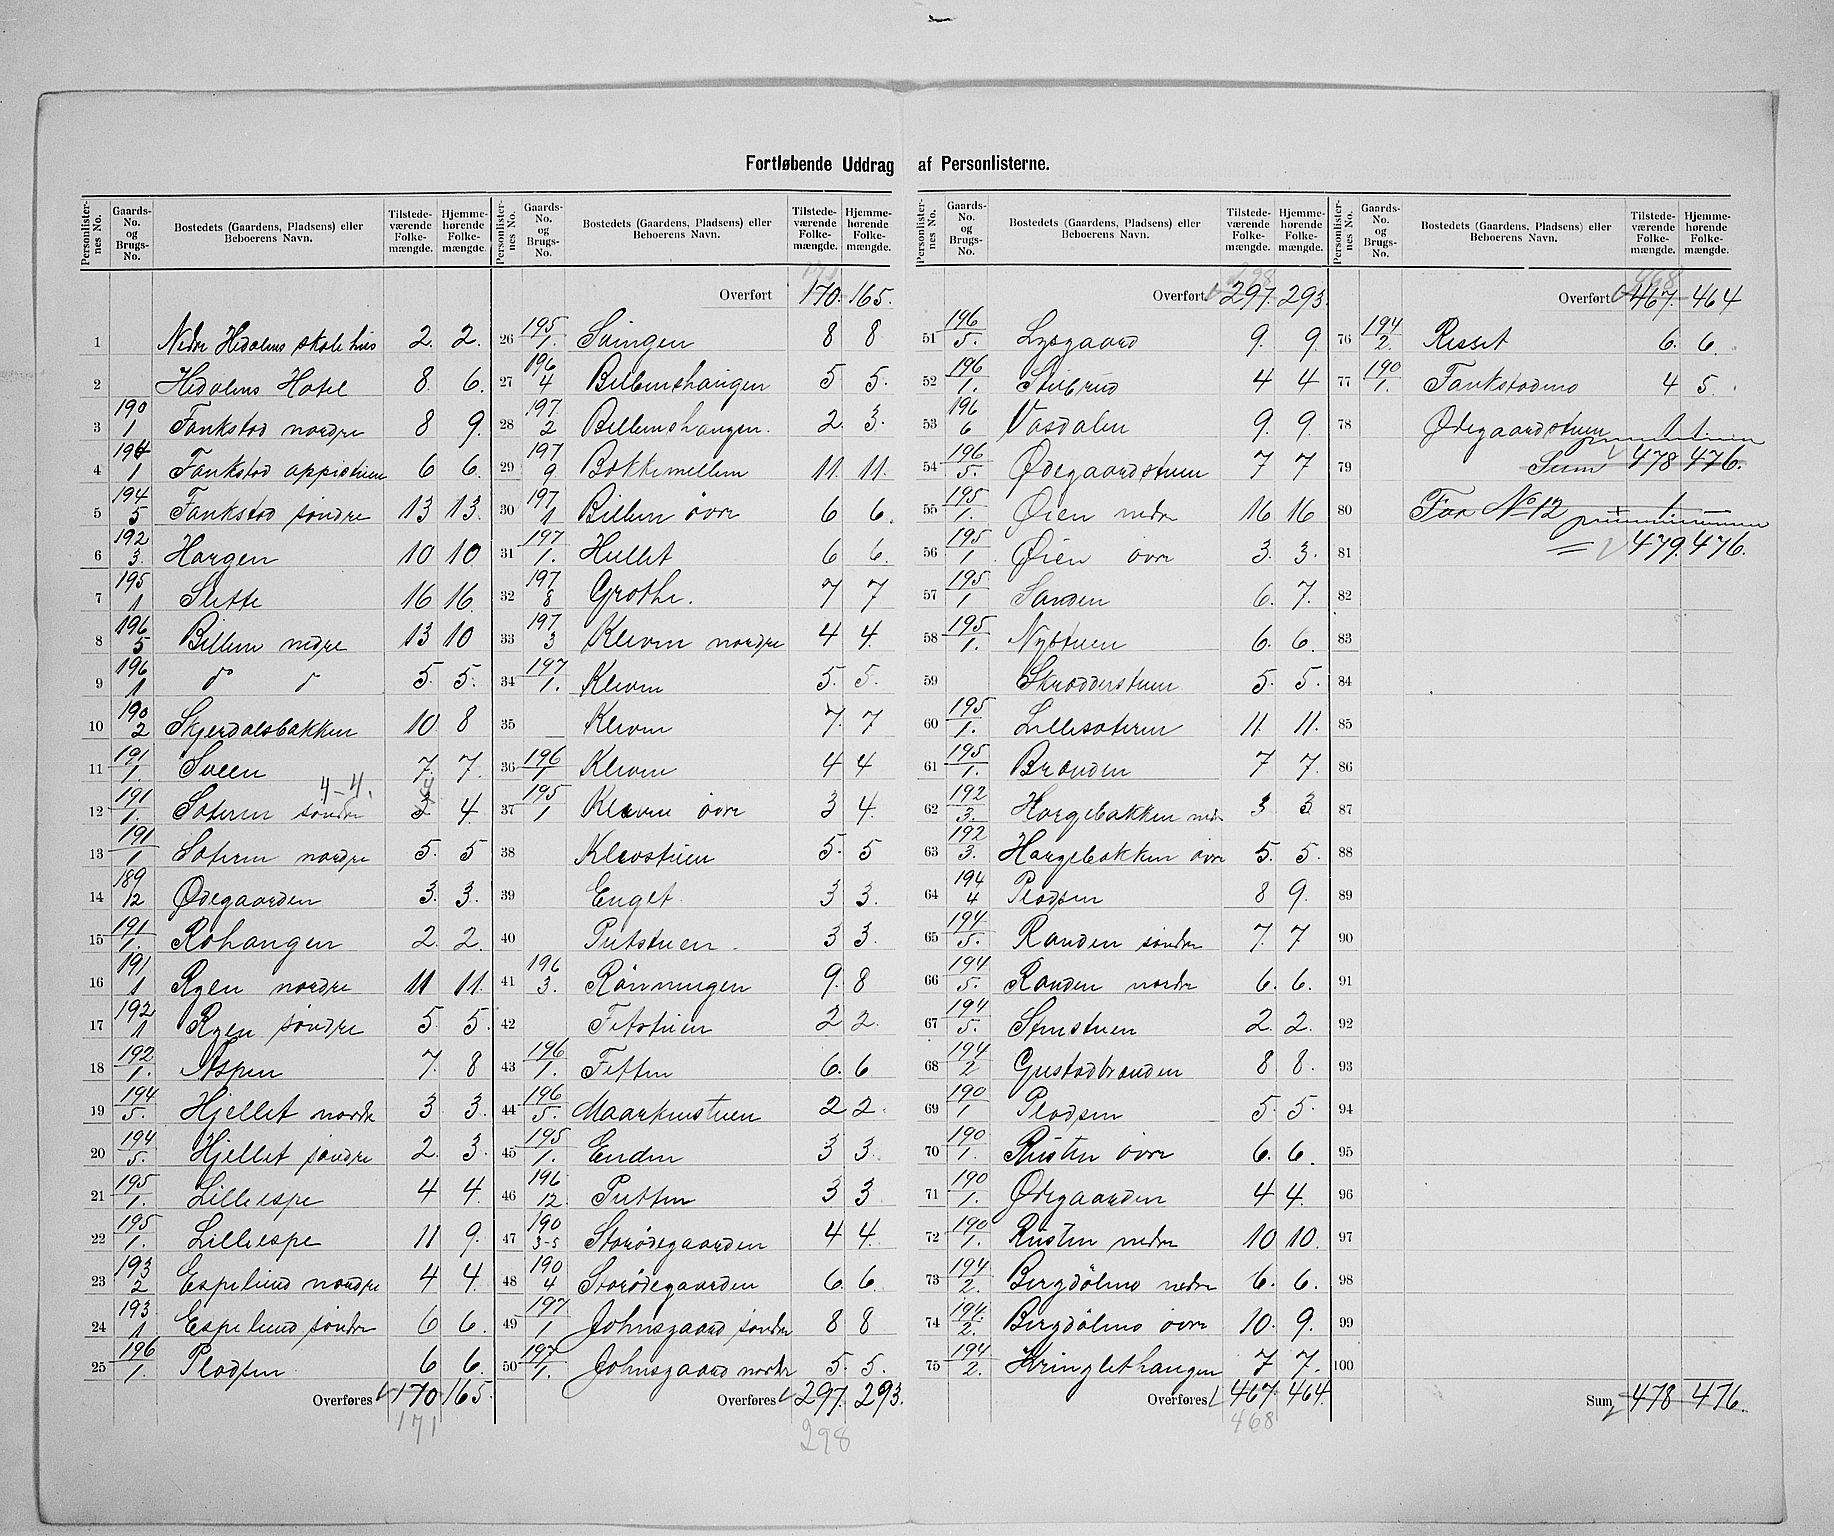 Fortløbende Uddrag af Personlisterne.
Personlisternes No. Gaards-No. og Brugs-No. Bostedets (Gaardens, Pladsens) eller Beboerens Navn. Tilstedeværende Folkemængde. Hjemmehørende Folkemængde.
1 Nedre Hedalens skolehus 2. 2.
2 Hedalens Hotel 8. 6.
3 190/1 Fonkstad nordre 8 9.
4 190/1 Fonkstad oppistuen 6 6.
5 194/5 Fonkstad søndre 13 13.
6 192/3. Horgen 10 10
7 195/1 Slette 16 16.
8 196/5 Billern nedre 13 10
9 196/1 d° d° 5. 5.
10 190/2 Skjerdalsbakken 10. 8
11 191/1. Sveen 7. 7.
4-4. 4
12 191/1. Sæteren søndre 3 4.
13 191/1 Sæteren nordre 5. 5
14 189/12 Ødegaarden 3. 3.
15 191/1. Rohaugen 2. 2.
16 191/1 Ryen nordre 11 11.
17 192/1 Ryen søndre 5. 5.
18 192/1. Aspen 7. 8
19 194/5. Hjellet nordre 3 3.
20 194/5. Hjellet søndre 2. 3.
21 195/1. Lilleespe 4 4.
22 195/1. Lilleespe 11 9.
23 193/2 Espelund nordre 4 4.
24 193/1 Espelund søndre 6 6.
25 196/1. Pladsen 6 6.
Overføres 170 165.
171
171
Overført 170. 165.
26 195/1. Svingen 8 8
27 196/4 Billernshaugen 5 5.
28 197/2 Billernshaugen. 2. 3.
29 197/9 Bakkemellem 11. 11.
30 197/1 Billern øvre 6 6.
31 197/1. Hullet 6 6.
32 197/8 Grothe. 7 7
33 197/3 Kleven nordre 4 4.
34 197/1. Kleven 5. 5.
35 Kleven 7. 7
36 196/1 Kleven 4 4
37 195/1 Kleven øvre 3 4.
38 Klevstuen 5. 5
39 Enget 3 3.
40 Putstuen. 3 3.
41 196/3. Rønningen 9. 8
42 Fetstuen 2 2.
43 196/1. Fetten 6. 6
44 196/5. Maarkenstuen 2 2.
45 195/1. Enden 3 3.
46 196/12. Putten 3 3
47 190/3-5 Storødegaarden 4 4.
48 190/4 Storødegaarden 6. 6.
49 197/1 Johnsgaard søndre 8 8
50 197/1. Johnsgaard nordre 5. 5.
Overføres 297. 293.
298
298
Overført 297. 293.
51 196/5. Lysgaard 9. 9.
52 196/1. Stubrud 4 4
53 196/6 Vasdalen 9. 9.
54 196/5. Ødegaardstuen 7 7
55 195/1. Øien nedre 16 16
56 195/1 Øien øvre 3. 3.
57 195/1 Sanden 6. 7.
58 195/1. Nystuen 6. 6.
59 Skrædderstuen 5. 5.
60 195/1. Lillesæteren 11. 11.
61 195/1. Braaden 7 7.
62 192/3. Horgebakken nedre 3 3
63 192/3. Horgebakken øvre 5. 5.
64 194/4 Pladsen 8 9.
65 194/5. Randen søndre 7. 7
66 194/5. Randen nordre 6. 6.
67 194/5. Stenstuen 2. 2.
68 194/2 Gustadbraaden 8 8.
69 190/1 Pladsen 5. 5.
70 190/1. Rusten øvre 6. 6.
71 190/1. Ødegaarden 4 4.
72 190/1. Rusten nedre 10 10.
73 194/2. Bergdølmo nedre 6. 6.
74 194/2. Bergdølmo øvre 10. 9.
75 194/2. Kringlethaugen 7 7.
Overføres 467. 464.
468
468
Overført 467. 464
76 194/2 Risset 6. 6.
77 190/1. Fonkstadmo 4 5.
78 Ødegaardstuen 1 1.
79 Sum 478 476.
80 For No 12 1
81 = 479. 476.
82
83
84
85
86
87
88
89
90
91
92
93
94
95
96
97
98
99
100
Sum 478 476.